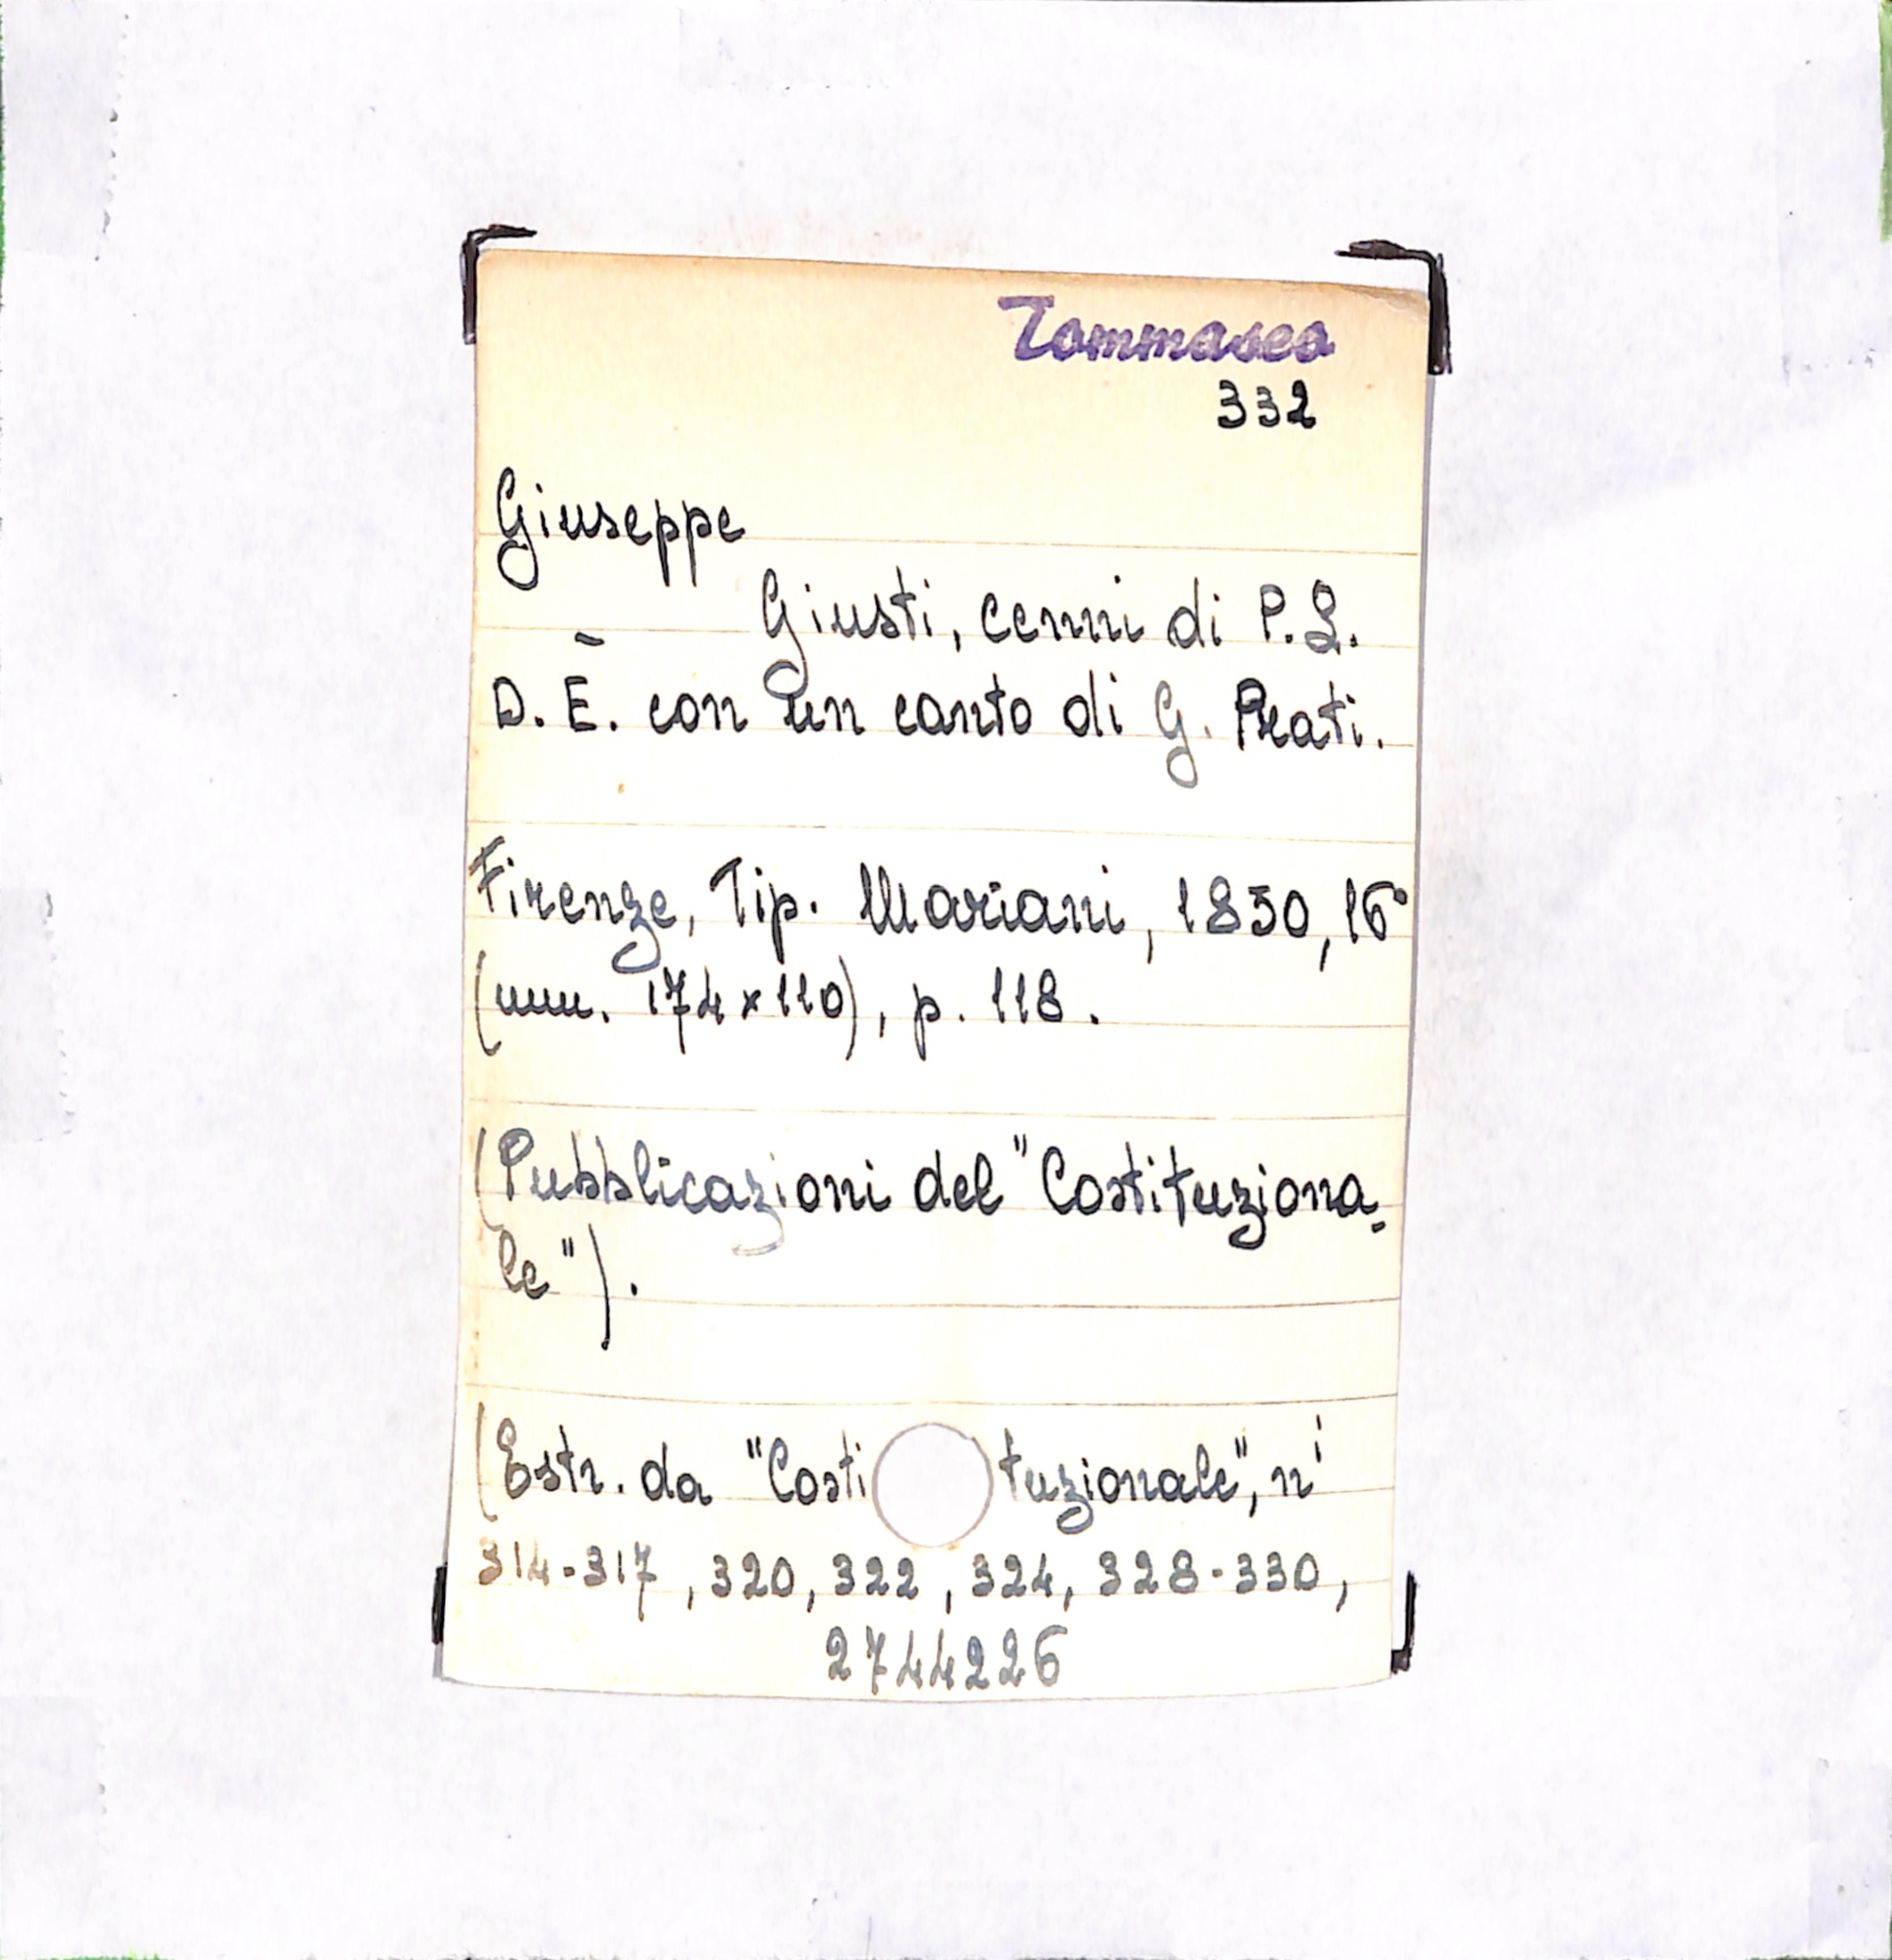 Tommaseo
332
Giuseppe
Giusti, cenni di P. L.
D. E. con un canto di G. Prati.
Firenze, Tip. Mariani, 1850, 16°
(mm. 174 x 110), p. 118.
(Pubblicazioni del "Costituziona-
le").
(Estr. da "Costituzionale", nⁱ
314-317, 320, 322, 324, 328-330,
2744226